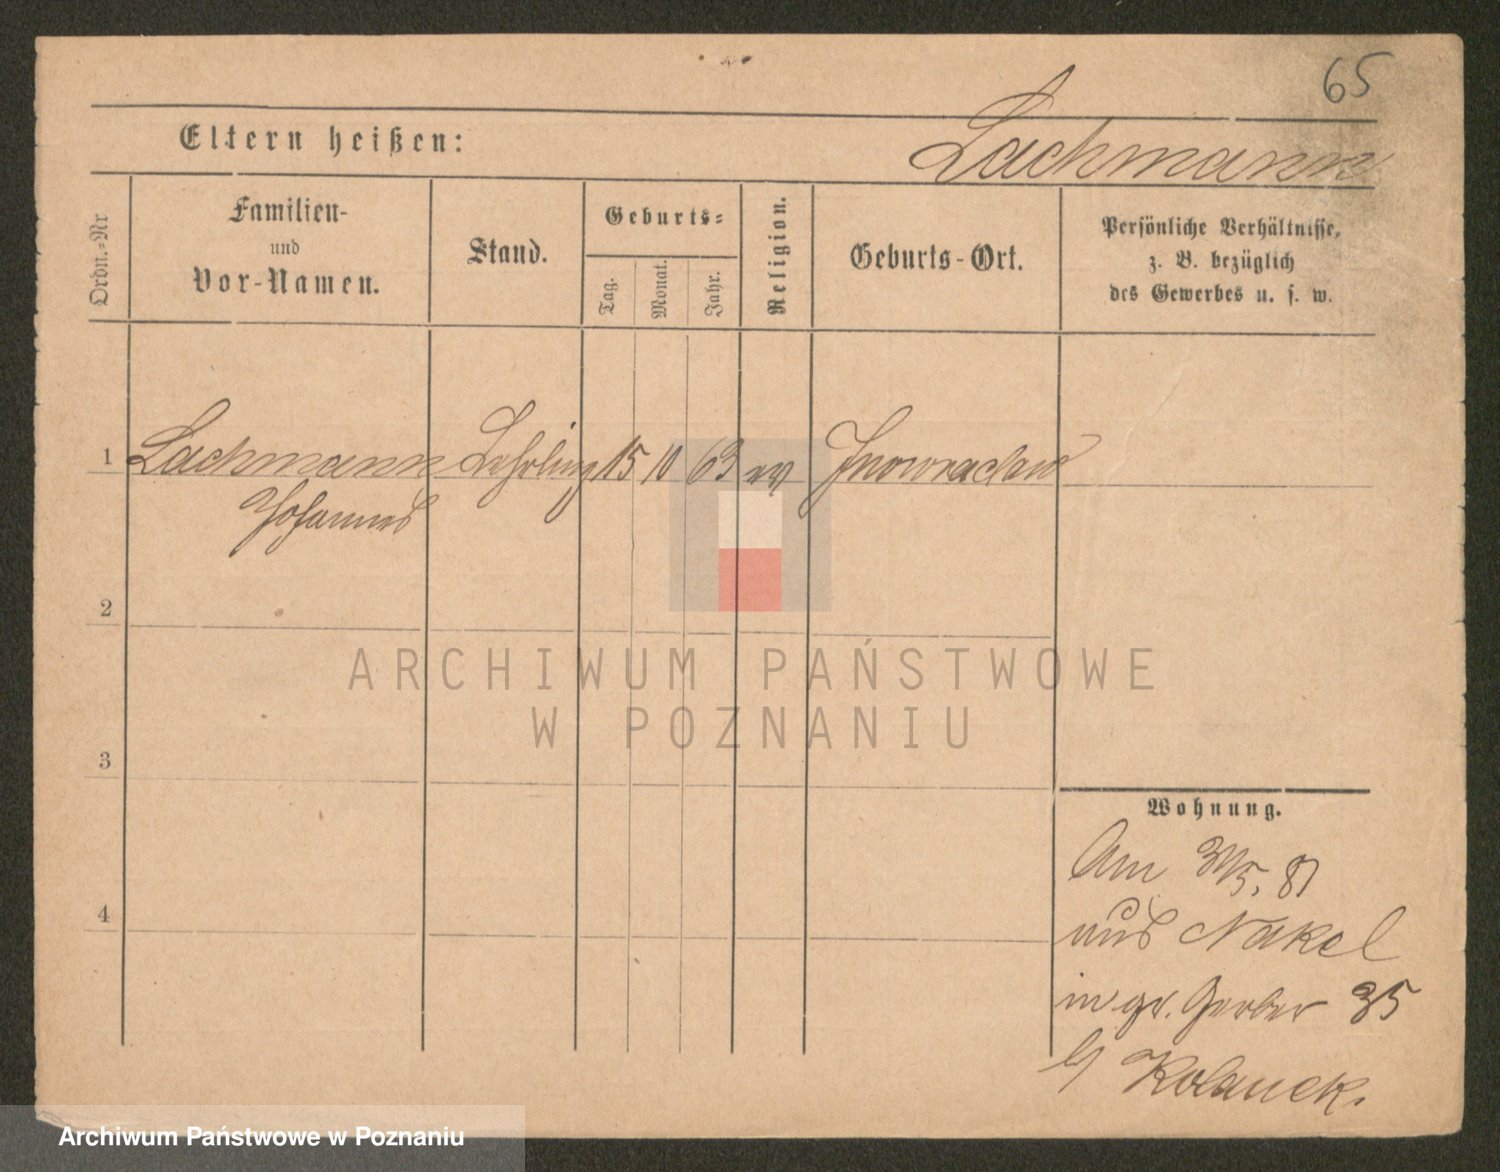 65
Eltern heißen:
Lachmann
Ordn.-Nr
Familien-
und
Vor-Namen.
Stand.
Geburts-
Tag.
Monat.
Jahr.
Religion.
Geburts-Ort.
Persönliche Verhältnisse,
z. B. bezüglich
des Gewerbes u. s. w.
1 Lachmann Lehrling 15 10 63 ev Inowraclaw
Johannes
2
3
4
Wohnung.
Am 5. 81
aus Nakel
in gr. Gerber 35
b/ Kolanek.
ARCHIWUM PAŃSTWOWE
W POZNANIU
Archiwum Państwowe w Poznaniu